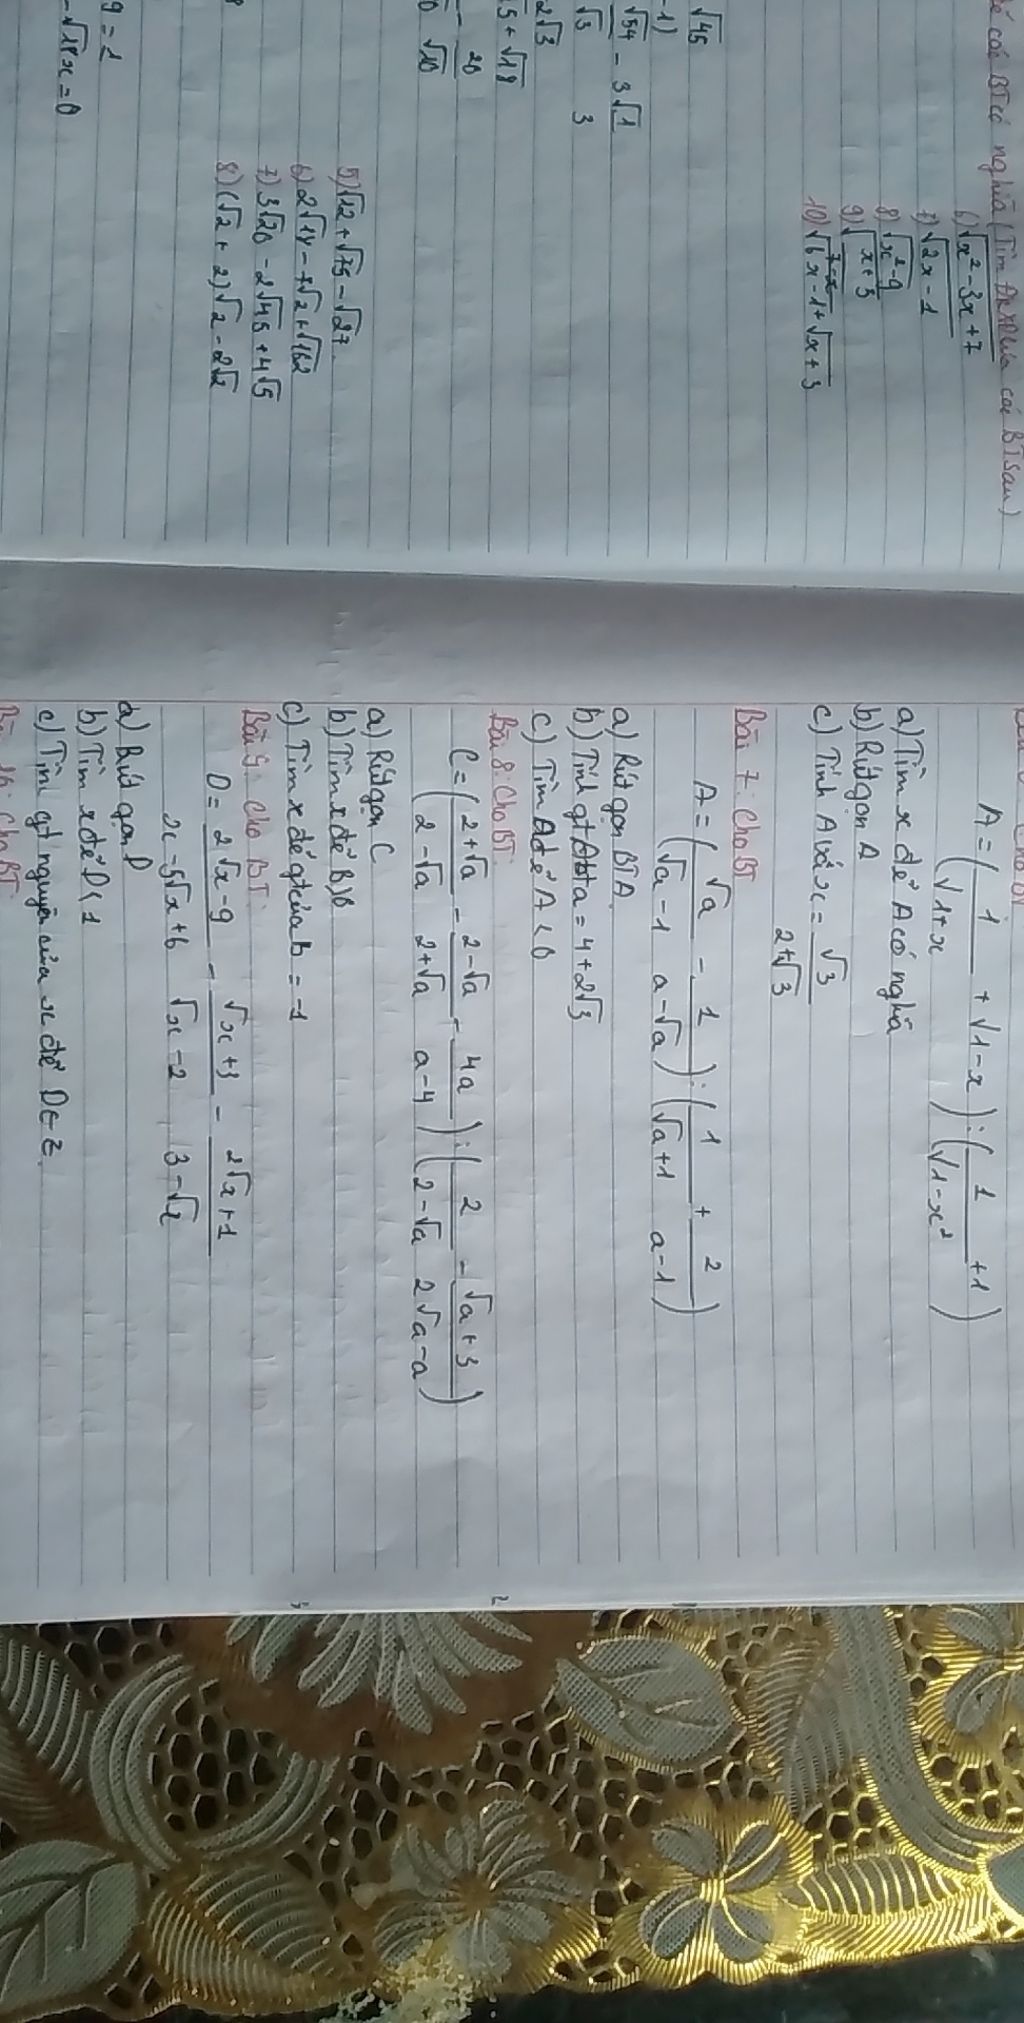 để các BT có nghĩa (Tìm ĐKXĐ của các BT sau)
6) √x² - 3x + 7
7) √2x - 1
8) √x² - 9
9) √x + 3 / 7 - x
10) √6x - 1 + √x + 3
√45
- 1)
√54 - 3√1
√3 3
2√3
15 + √18
- 20
√10
5) √12 + √75 - √27
6) 2√14 - 7√2 + √162
7) 3√20 - 2√45 + 4√5
8) (√2 + 2)√2 - 2√2
9 = 1
- √18x = 0
A = ( 1 / √1+x + √1-x ) : ( 1 / √1-x² + 1 )
a) Tìm x để A có nghĩa
b) Rút gọn A
c) Tính A với x = √3 / 2+√3
Bài 7: Cho BT
A = ( √a / √a - 1 - 1 / a - √a ) : ( 1 / √a + 1 + 2 / a - 1 )
a) Rút gọn BT A
b) Tính gt A a = 4 + 2√3
c) Tìm A để A < 0
Bài 8: Cho BT:
C = ( 2+√a / 2-√a - 2-√a / 2+√a - 4a / a-4 ) : ( 2 / 2-√a - √a+3 / 2√a-a )
a) Rút gọn C
b) Tìm x để B > 0
c) Tìm x để gt của b = -1
Bài 9: Cho BT:
D = 2√x - 9 / x - 5√x + 6 - √x + 3 / √x - 2 - 2√x + 1 / 3 - √x
a) Rút gọn D
b) Tìm x để D < 1
c) Tìm gt nguyên của x để D ∈ Z
Cho BT: